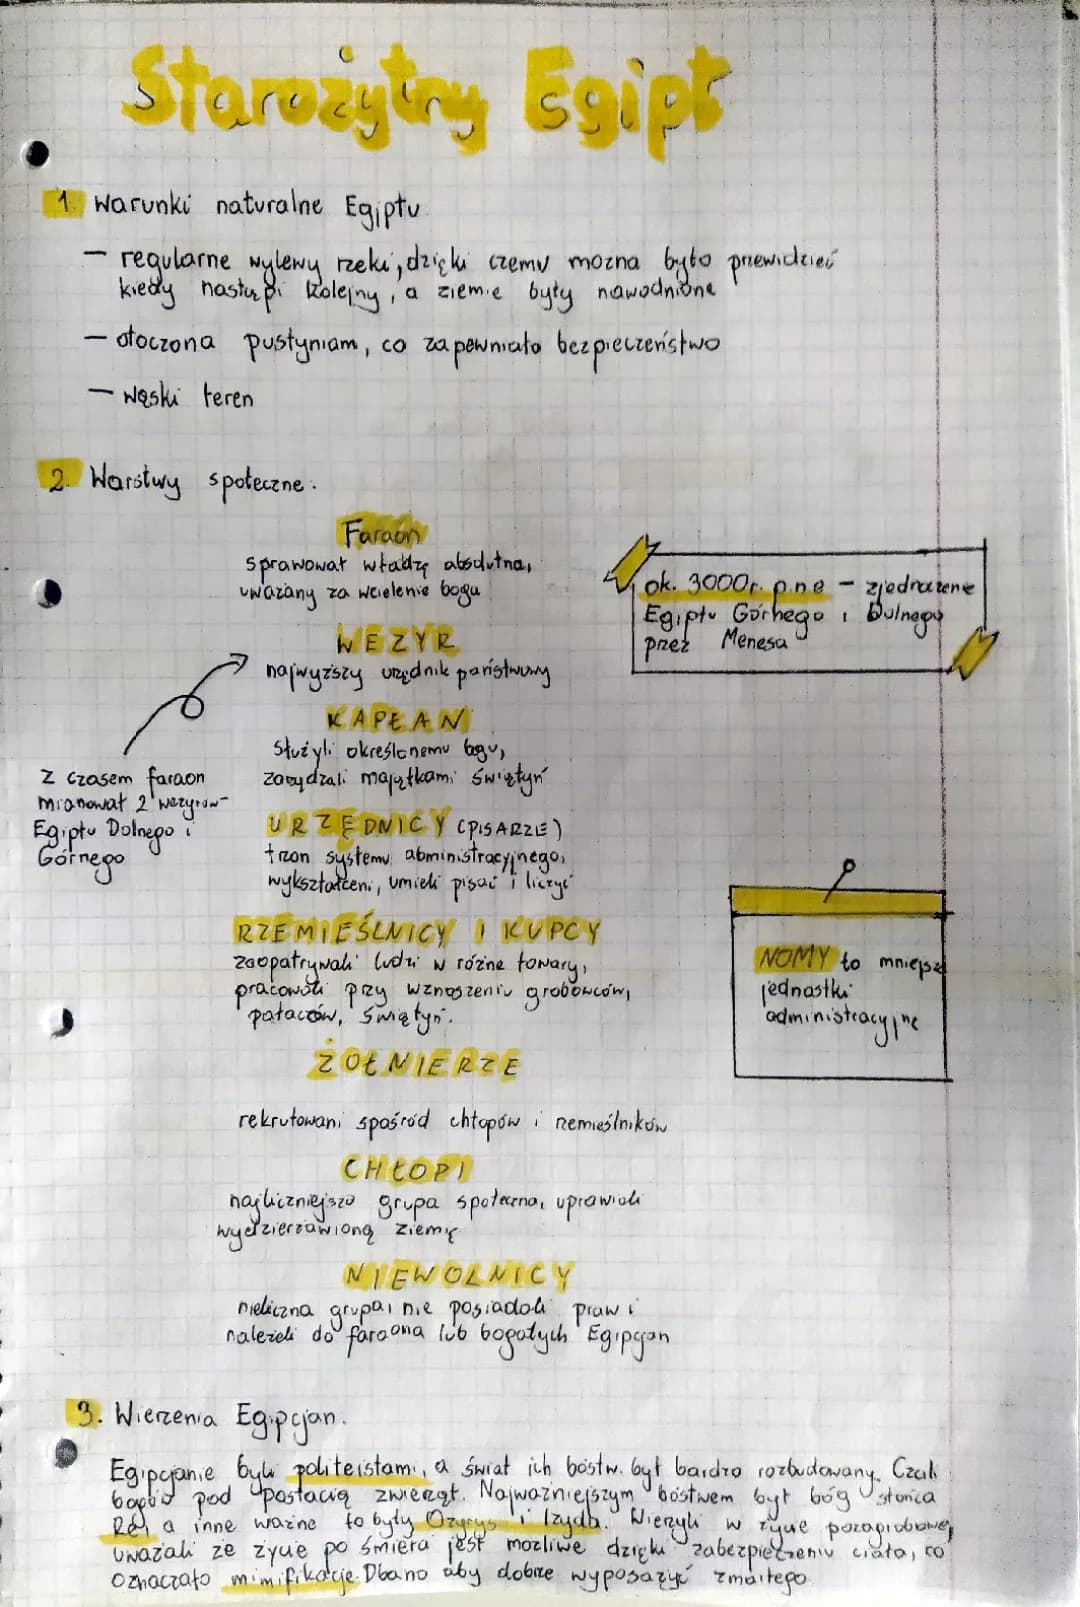 Starożytny Egipt
1. Warunki naturalne Egiptu
– regularne wylewy rzeki, dzięki czemu można było przewidzieć
kiedy nastąpi kolejny, a ziemie były nawodnione
– otoczona pustyniam, co zapewniało bezpieczeństwo
– wąski teren
2. Warstwy społeczne.
Faraon
sprawował władzę absolutną,
uważany za wcielenie boga
WEZYR
najwyższy urzędnik państwowy
KAPŁANI
Służyli określonemu bogu,
zarządzali majątkami świątyń
URZĘDNICY (PISARZE)
trzon systemu abministracyjnego,
wykształceni, umieli pisać i liczyć
RZEMIEŚLNICY I KUPCY
zaopatrywali ludzi w różne towary,
pracowali przy wznoszeniu grobowców,
pałaców, świątyń.
ŻOŁNIERZE
rekrutowani spośród chłopów i rzemieślników
CHŁOPI
najliczniejsza grupa społeczna, uprawiali
wydzierżawioną ziemię
NIEWOLNICY
nieliczna grupa, nie posiadali praw i
należeli do faraona lub bogatych Egipcjan
z czasem faraon
mianował 2 wezyrów–
Egiptu Dolnego i
Górnego
ok. 3000r. p.n.e – zjednoczenie
Egiptu Górnego i Dolnego
przez Menesa
NOMY to mniejsze
jednostki
administracyjne
3. Wierzenia Egipcjan.
Egipcjanie byli politeistami, a świat ich bóstw. był bardzo rozbudowany. Czcili
bogów pod postacią zwierząt. Najważniejszym bóstwem był bóg słońca
Re, a inne ważne to były Ozyrys i Izyda. Wierzyli w życie pozagrobowe,
uważali że życie po śmierci jest możliwe dzięki zabezpieczeniu ciała, co
oznaczało mimifikację. Dbano aby dobrze wyposażyć zmarłego.